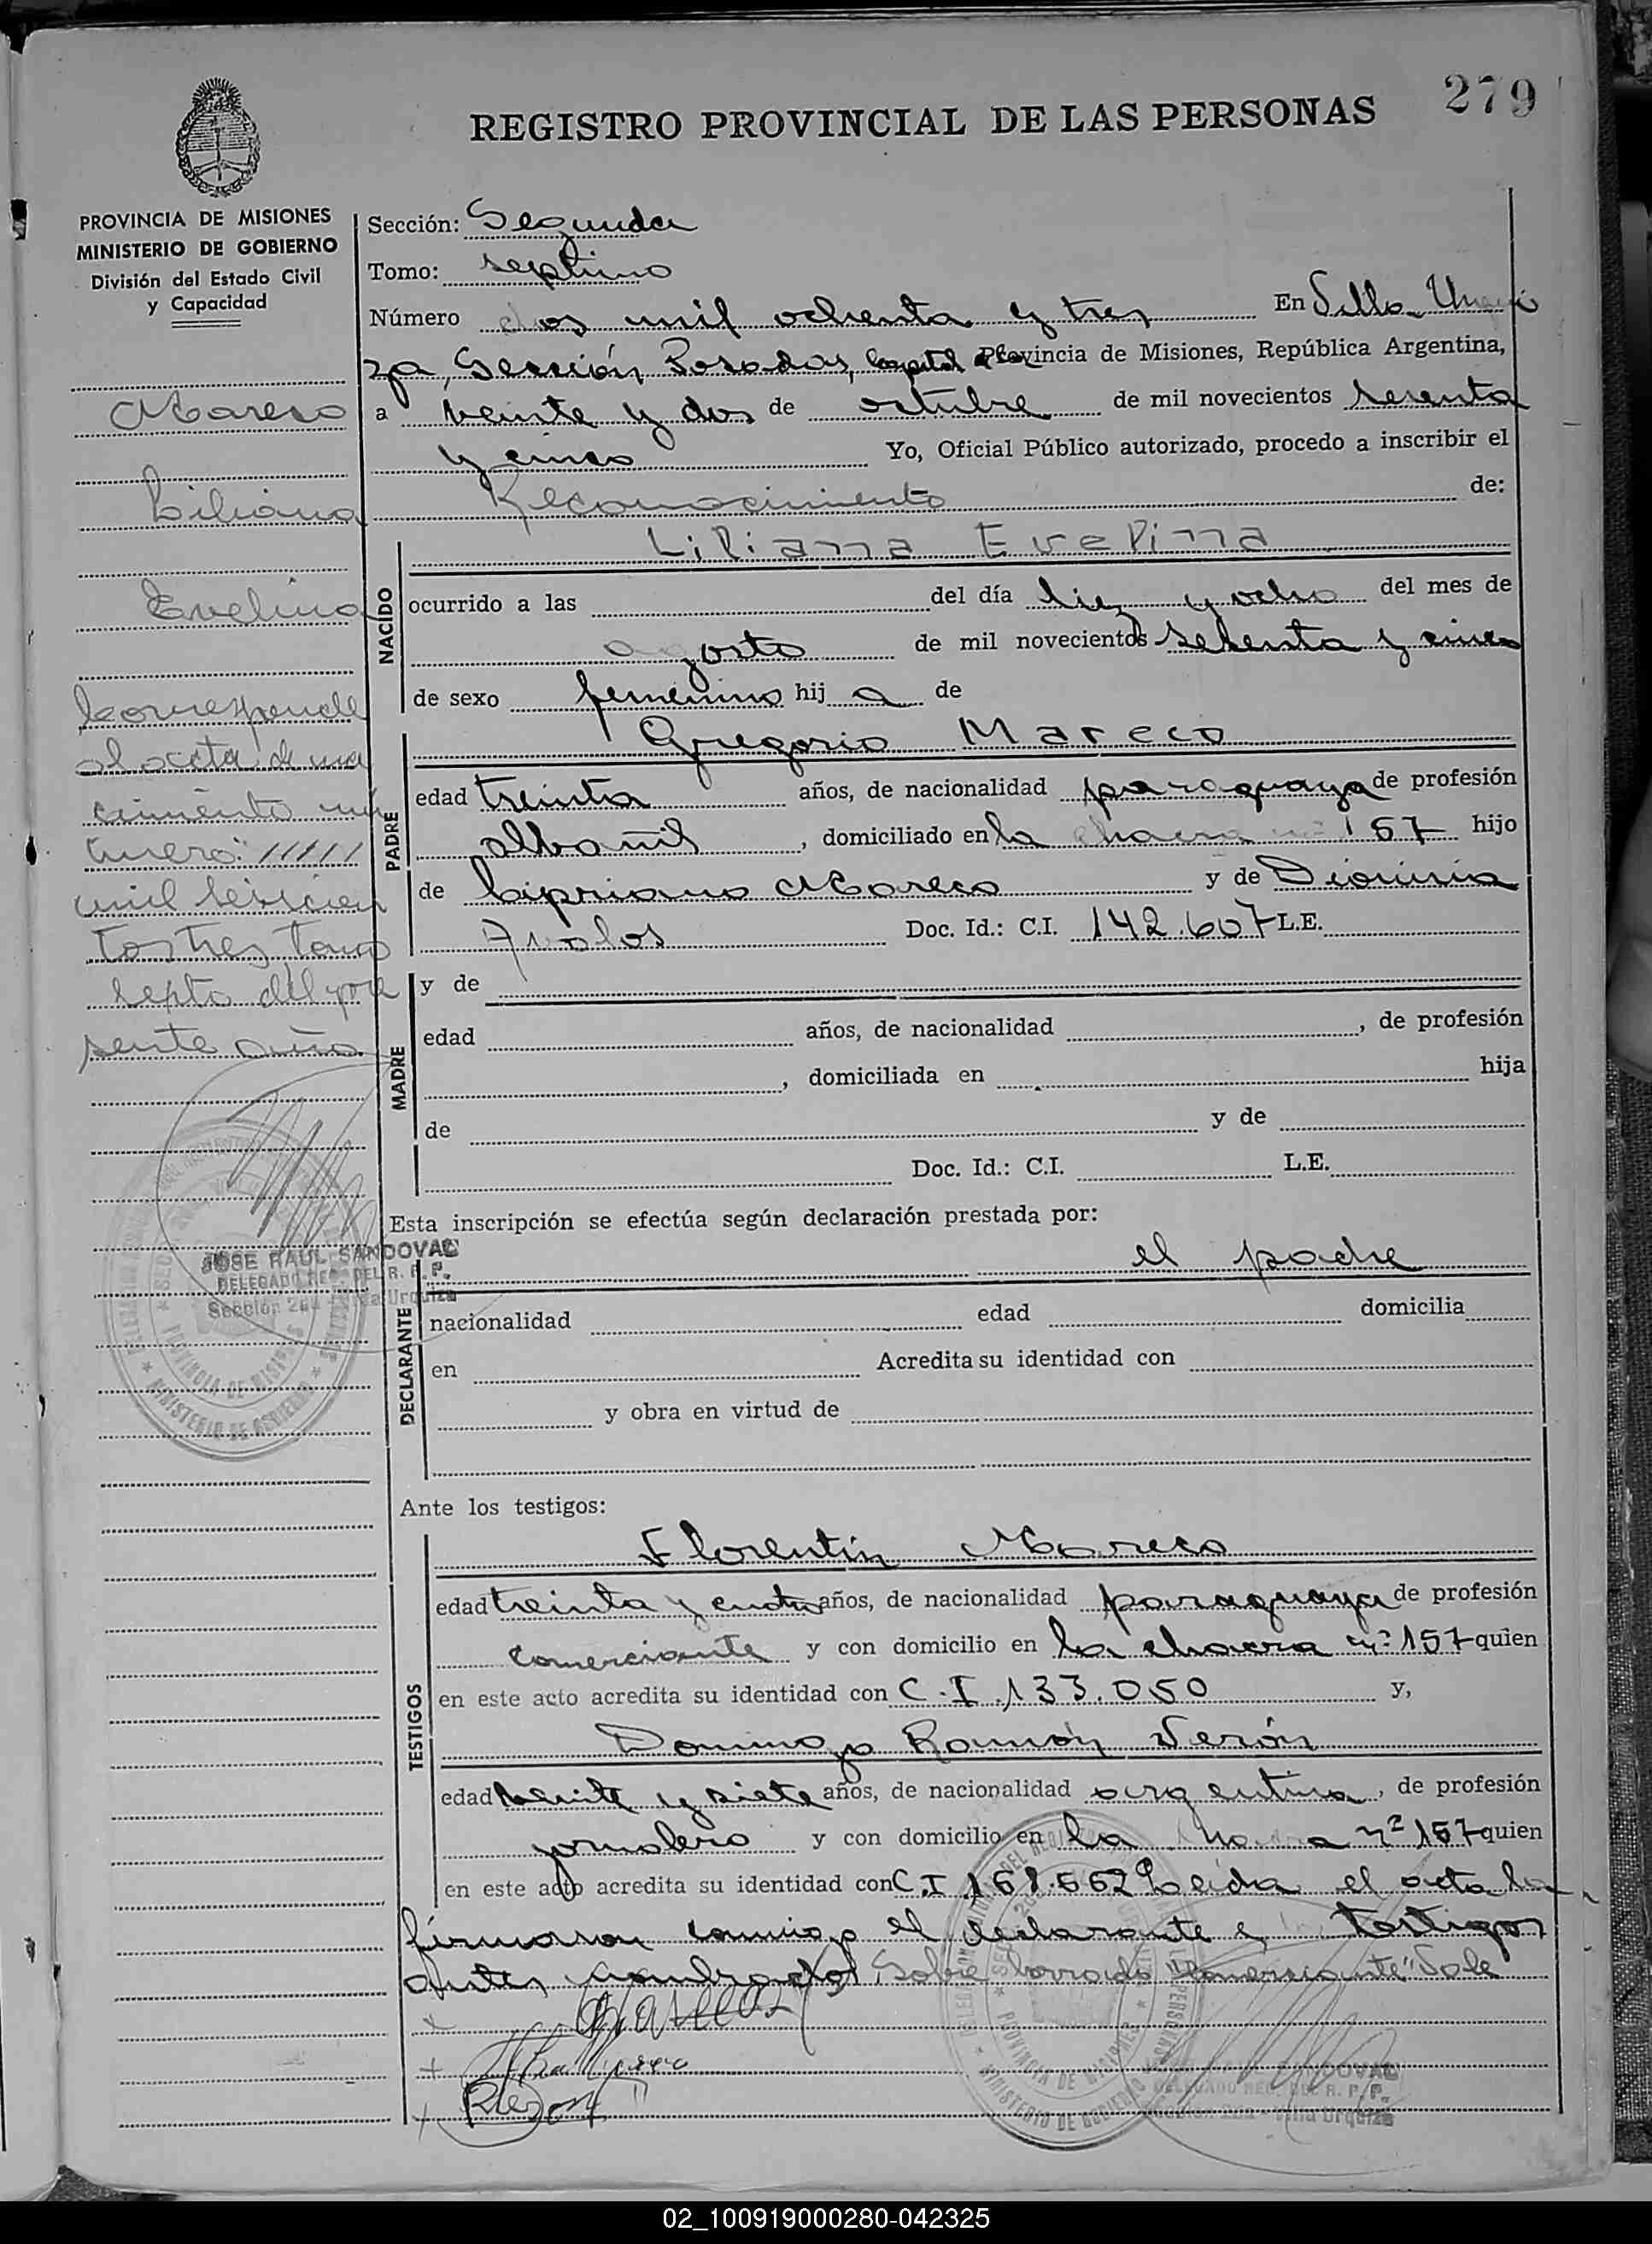 279
REGISTRO PROVINCIAL DE LAS PERSONAS
PROVINCIA DE MISIONES
MINISTERIO DE GOBIERNO
División del Estado Civil
y Capacidad
Mareco
Liliana
Evelina
Corresponde
al acta de na
cimiento nú
mero: /////
mil seiscien
tos tres tomo
septo del pre
sente año
JOSE RAUL SANDOVAL
DELEGADO REG. DEL R. P. P.
Sección 2da - Villa Urquiza
Sección: Segunda
Tomo: septimo
Número dos mil ochenta y tres En Villa Urqui
za, Sección Posadas, Capital Provincia de Misiones, República Argentina,
a veinte y dos de octubre de mil novecientos setenta
y cinco Yo, Oficial Público autorizado, procedo a inscribir el
Reconocimiento de:
NACIDO
Liliana Evelina
ocurrido a las del día diez y ocho del mes de
agosto de mil novecientos setenta y cinco
de sexo femenino hij a de
PADRE
Gregorio Mareco
edad treinta años, de nacionalidad paraguaya de profesión
albañil, domiciliado en la chacra nº 157 hijo
de Cipriano Mareco y de Dionicia
Avalos Doc. Id.: C.I. 142.607 L.E.
MADRE
y de
edad años, de nacionalidad , de profesión
, domiciliada en hija
de y de
Doc. Id.: C.I. L.E.
Esta inscripción se efectúa según declaración prestada por:
DECLARANTE
el padre
nacionalidad edad domicilia
en Acredita su identidad con
y obra en virtud de
Ante los testigos:
TESTIGOS
Florentín Mareco
edad treinta y cuatro años, de nacionalidad paraguaya de profesión
comerciante y con domicilio en la chacra nº 157 quien
en este acto acredita su identidad con C.I. 133.050 y,
Domingo Ramón Verón
edad veinte y siete años, de nacionalidad argentina, de profesión
jornalero y con domicilio en la chacra nº 157 quien
en este acto acredita su identidad con C.I. Leída el acta la
firmaron conmigo el declarante y los testigos
antes nombrados. Sobre borrado "comerciante" Vale
SANDOVAL
DELEGADO REG. DEL R. P. P.
Sección 2da - Villa Urquiza
PROVINCIA DE MISIONES
MINISTERIO DE GOBIERNO
02_100919000280-042325